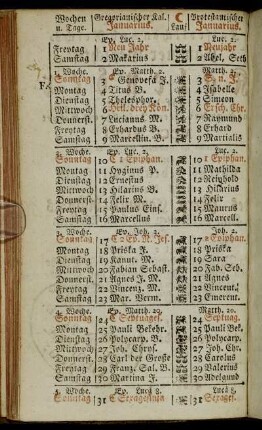 Wochen Gregorianischer Kal. ☾ Protestantischer
u. Tage. JANUARIUS. Lauf Januarius.
Ev. Luc. 2. Luc. 2.
Freytag 1 Neu Jahr 1 Neujahr
Samstag 2 Makarius. 2 Abel, Seth
1. Woche. Ev. Matth. 2. Matth. 2.
Sonntag 3 Genovefa J. 3
Montag 4 Titus B. 4 Isabelle
Dienstag 5 Thelesphor. 5 Simeon
Mittwoch 6 Heil. drey Kön. 6 Ersch. Chr.
Donnerst. 7 Lucianus M. 7 Raymund
Freytag 8 Erhardus B. 8 Erhard
Samstag 9 Marcellin. B. 9 Martialis
2. Woche. Ev. Luc. 2. Luc. 2.
Sonntag 10 1 Epiphan. 10 1 Epiphan.
Montag 11 Hyginus P. 11 Mathilda
Dienstag 12 Ernestus 12 Reinhold
Mittwoch 13 Hilarius B. 13 Hilarius
Donnerst. 14 Felix M. 14 Felix
Freytag 15 Paulus Eins. 15 Maurus
Samstag 16 Marcellus 16 Marcell.
3. Woche. Ev. Joh. 2. Joh. 2.
Sonntag 17 2 Ep. N. Jes. 17 2 Epiphan.
Montag 18 Priska J. 18 Priska
Dienstag 19 Kanut. M. 19 Sara
Mittwoch 20 Fabian Sebast. 20 Fab. Seb.
Donnerst. 21 Agnes J. M. 21 Agnes
Freytag 22 Vincenz. M. 22 Vincent.
Samstag 23 Mar. Verm. 23 Emerent.
4. Woche. Ev. Matth. 20. Matth. 20.
Sonntag 24 Septuages. 24 Septuag.
Montag 25 Pauli Bekehr. 25 Pauli Bek.
Dienstag 26 Polycarp. B. 26 Polycarp.
Mittwoch 27 Joh. Chrys. 27 Joh. Chr.
Donnerst. 28 Carl der Große 28 Carolus
Freytag 29 Franz. Sal. B. 29 Valerius
Samstag 30 Martina J. 30 Adelgund
5. Woche. Ev. Lucä 8. Lucä 8.
Sonntag 31 Sexagesima 31 Sexages.